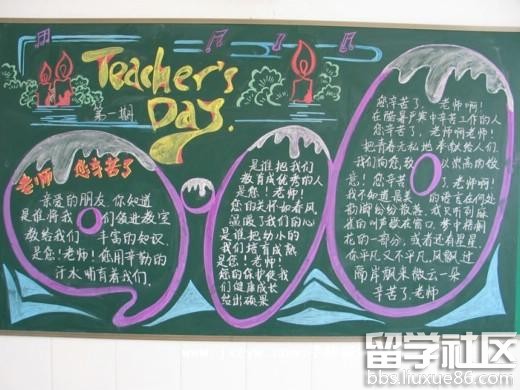 Teacher's
Day.
第一期
老师 您辛苦了
亲爱的朋友 你知道
是谁将我们领进教室
教给我们 丰富的知识
是您!老师!您用辛勤的
汗水哺育着我们.
是谁把我们
教育成优秀的人
是您!老师!
您的关怀如春风
温暖了我们的心
是谁把幼小的
我们培育成熟
是您!老师!
您的保护使我
们健康成长
结出硕果
您辛苦了,老师啊!
在酷暑严寒中辛苦工作的人
您辛苦了,老师啊老师!
把青春无私地奉献给人们.
我们向您致以崇高的敬
意!您辛苦了,老师啊!
我不知道最美的语言在何处
的叫声歇在窗口
花的一部分,或者还有星星.
你平凡又不平凡,风飘过
两岸飘来微云一朵
辛苦了.老师
留学社区
bbs.liuxue86.com